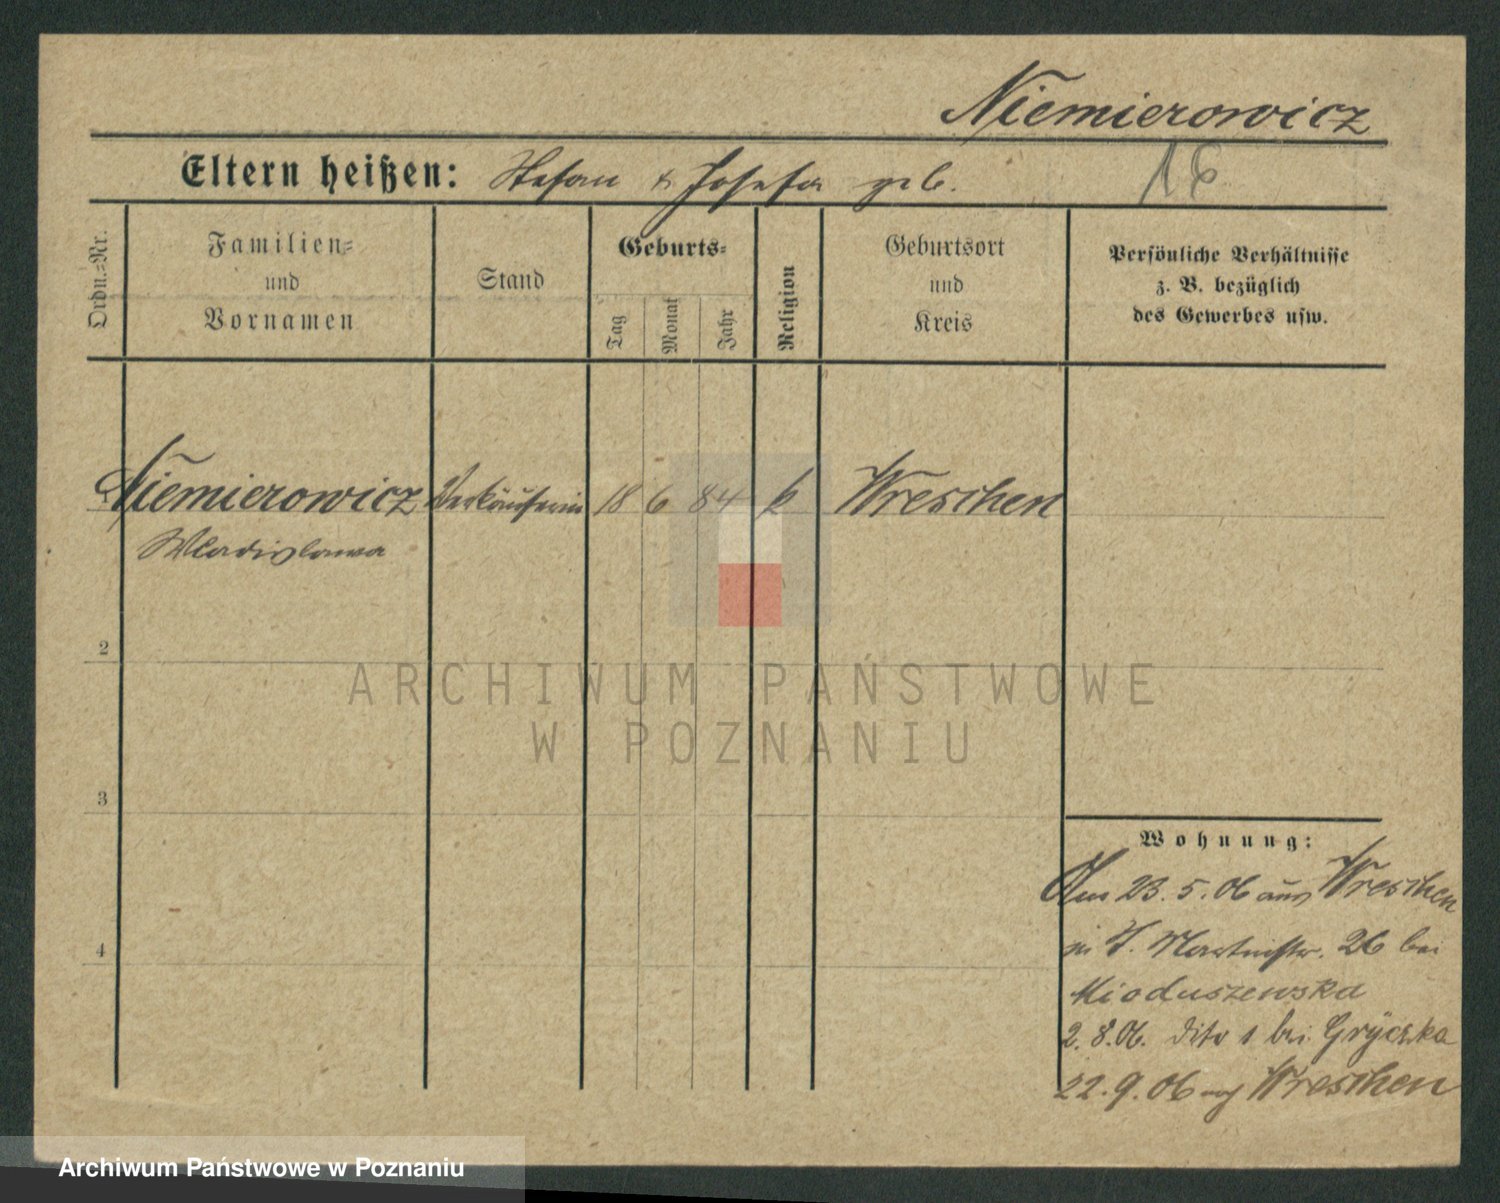 Niemierowicz
Eltern heißen: Stefan & Josefa geb.
16
Ordn.=Nr.
Familien=
und
Vornamen
Stand
Geburts=
Tag
Monat
Jahr
Religion
Geburtsort
und
Kreis
Persönliche Verhältnisse
z. B. bezüglich
des Gewerbes usw.
Niemierowicz Verkäuferin 18 6 84 k Wreschen
Wladislawa
2
3
4
Wohnung:
Am 23.5.06 aus Wreschen
26 bei
Mioduszewska
2.8.06. dito 1 bei
22.9.06 Wreschen
ARCHIWUM PAŃSTWOWE
W POZNANIU
Archiwum Państwowe w Poznaniu